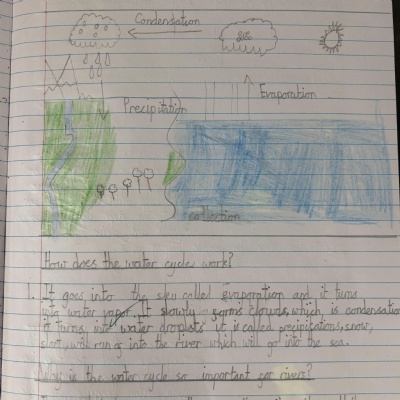 Condensation
Precipitation
Evaporation
collection
How does the water cycle work?
1. It goes into the sky called Evaporation and it turns
into water vapor. It slowly forms clouds, which is condensation
it turns into water droplets it is called precipitations, snow,
sleet, will run of into the river which will go into the sea.
Why is the water cycle so important for rivers?